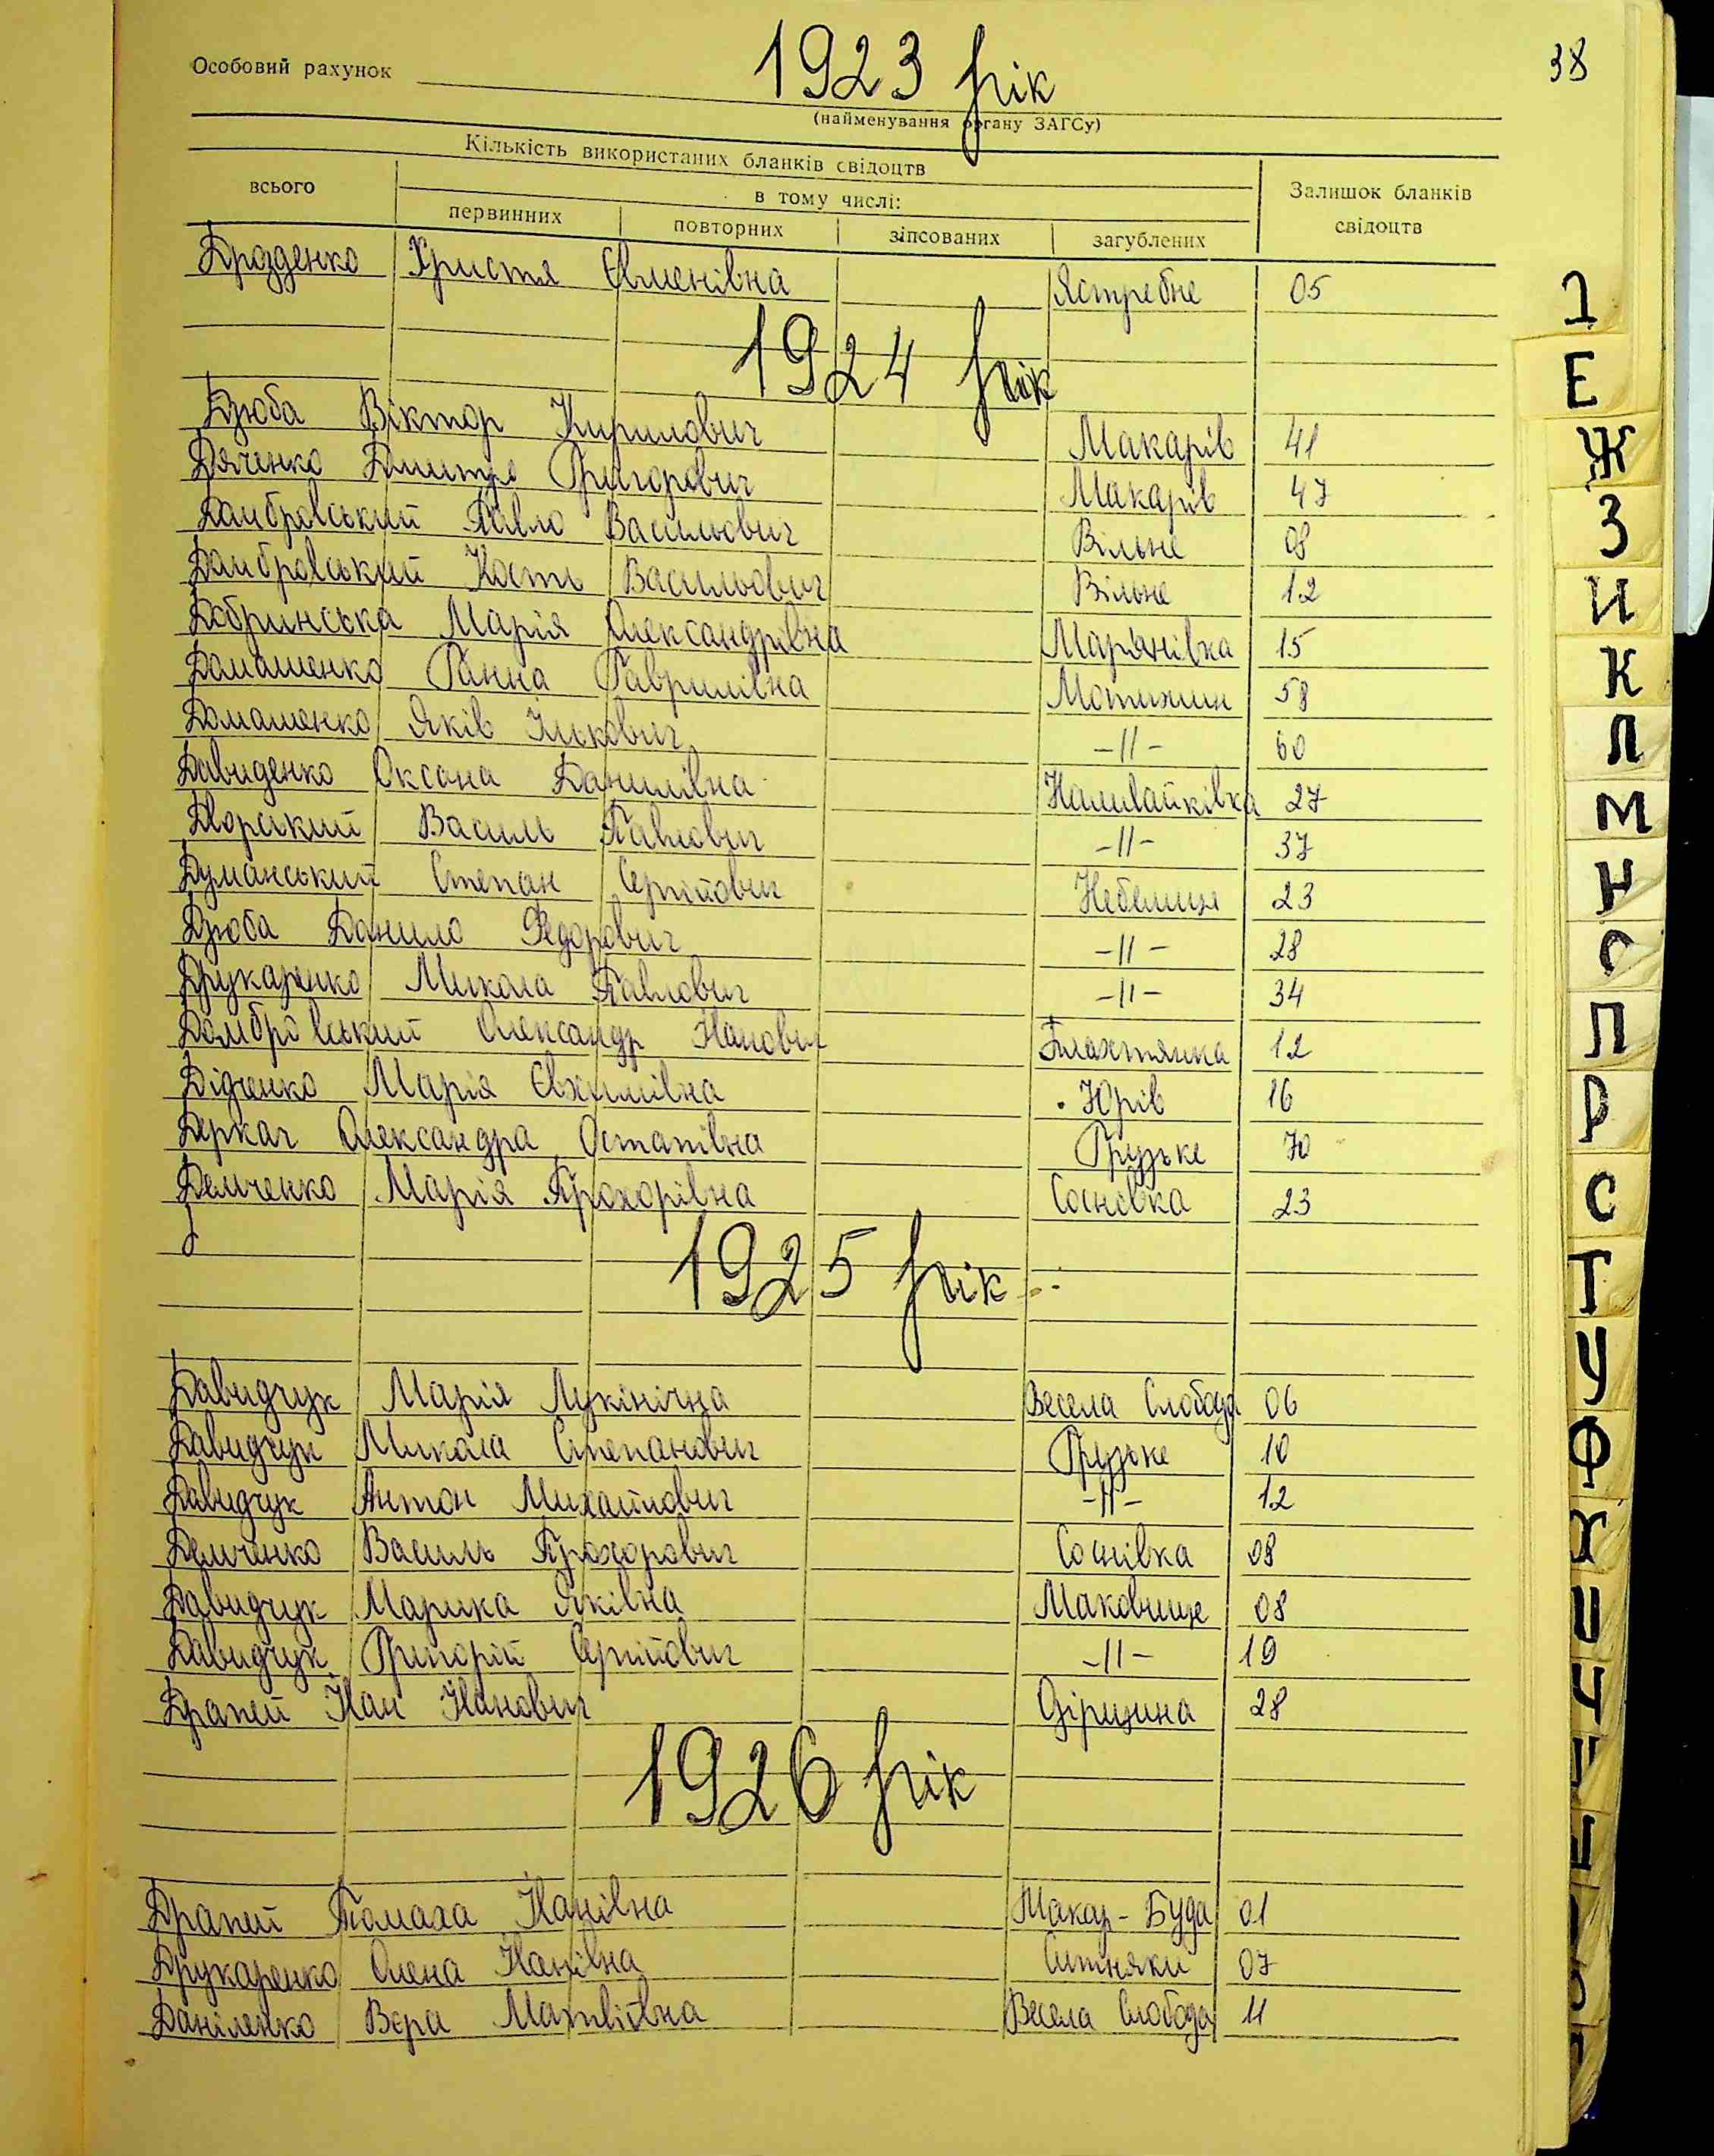 38
Особовий рахунок 1923 рік
(найменування органу ЗАГСу)
Кількість використаних бланків свідоцтв
всього в тому числі: Залишок бланків свідоцтв
первинних повторних зіпсованих загублених
Дрозденко Христя Євменівна Ястребне 05
1924 рік
Дзюба Віктор Кирилович Макарів 41
Дяченко Дмитро Григорович Макарів 47
Домбровський Павло Васильович Вільне 08
Домбровський Кость Васильович Вільне 12
Добринська Марія Олександрівна Мар'янівка 15
Домашенко Ганна Гаврилівна Мотижин 58
Домашенко Яків Ількович -//- 60
Давиденко Оксана Данилівна Наливайківка 27
Дворський Василь Павлович -//- 37
Думанський Степан Сергійович Небелиця 23
Дзюба Данило Федорович -//- 28
Друкаренко Микола Павлович -//- 34
Домбровський Олександр Іванович Плахтянка 12
Дідченко Марія Євхимівна Юрів 16
Деркач Олександра Остапівна Грузьке 70
Демченко Марія Прохорівна Соснівка 23
1925 рік
Давидчук Марія Лукінічна Весела Слобода 06
Давидчук Микола Степанович Грузьке 10
Давидчук Антон Михайлович -//- 12
Демченко Василь Прохорович Соснівка 08
Давидчук Марика Яківна Маковище 08
Давидчук Григорій Сергійович -//- 19
Драпей Іван Іванович 28
1926 рік
Драпей Палажа Іванівна Макар-Буда 01
Друкаренко Олена Іванівна Ситняки 07
Даніленко Вєра Матвіївна Весела Слобода 11
Е
Ж
З
И
К
Л
М
Н
О
П
Р
С
Т
У
Ф
Х
Ц
Ч